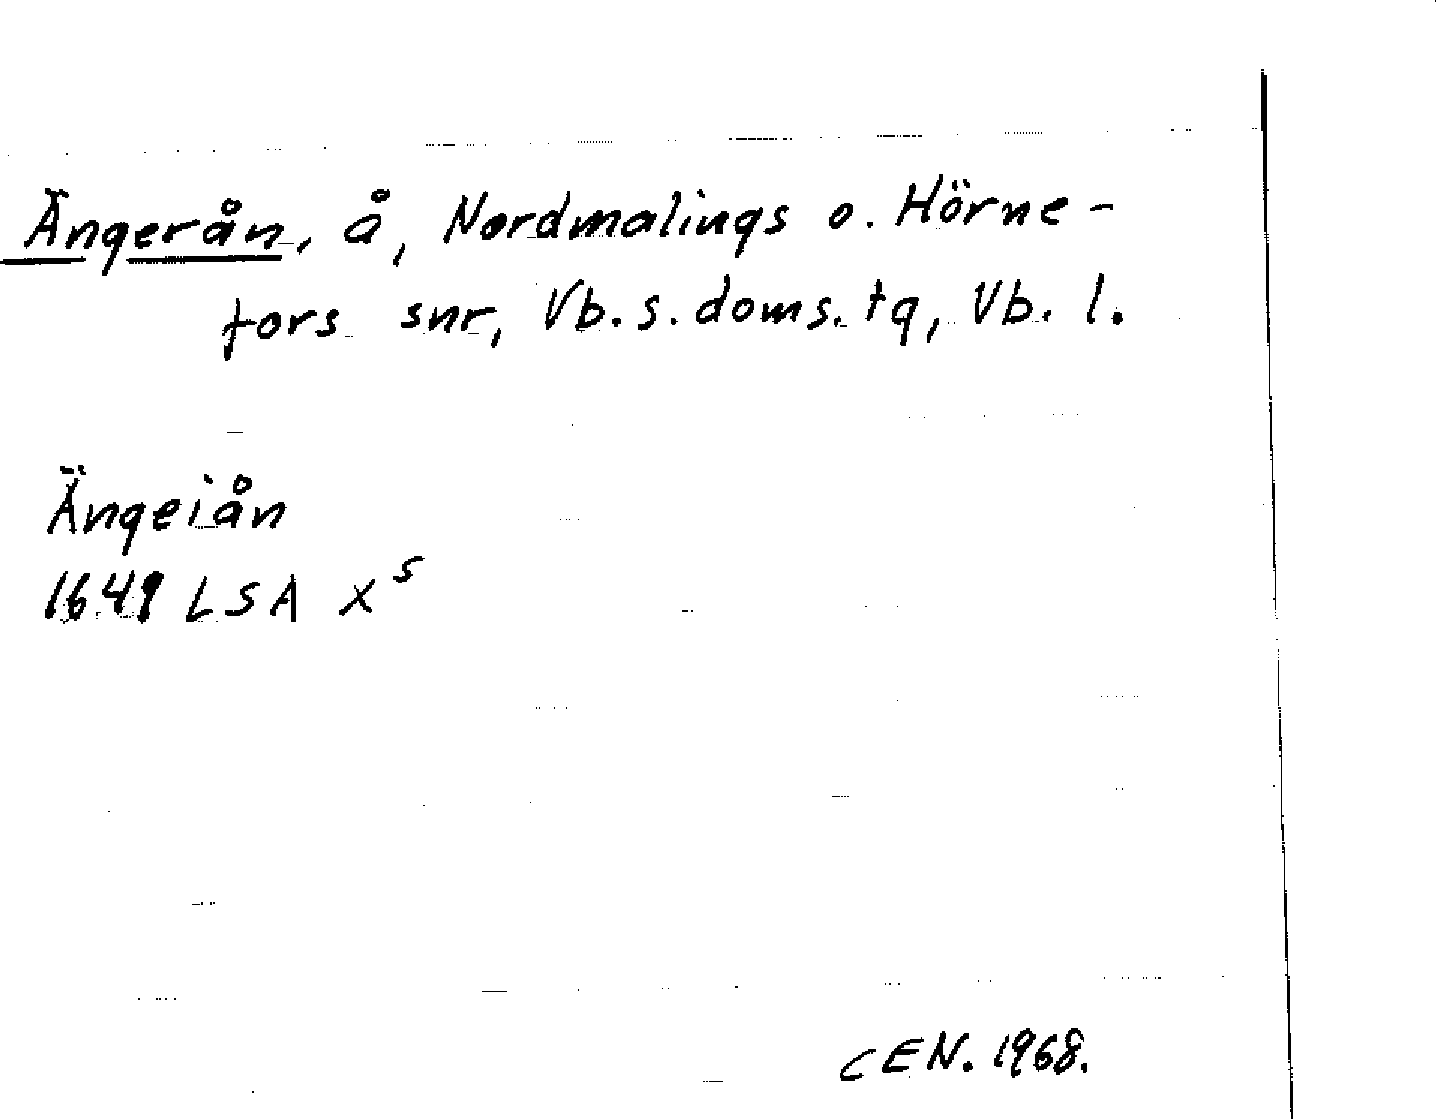 Ängerån, å, Nordmalings o. Hörne-
fors snr, Vb. s. doms. tg, Vb. l.
Ängeiån
1649 LSA x s
CEN. 1968.